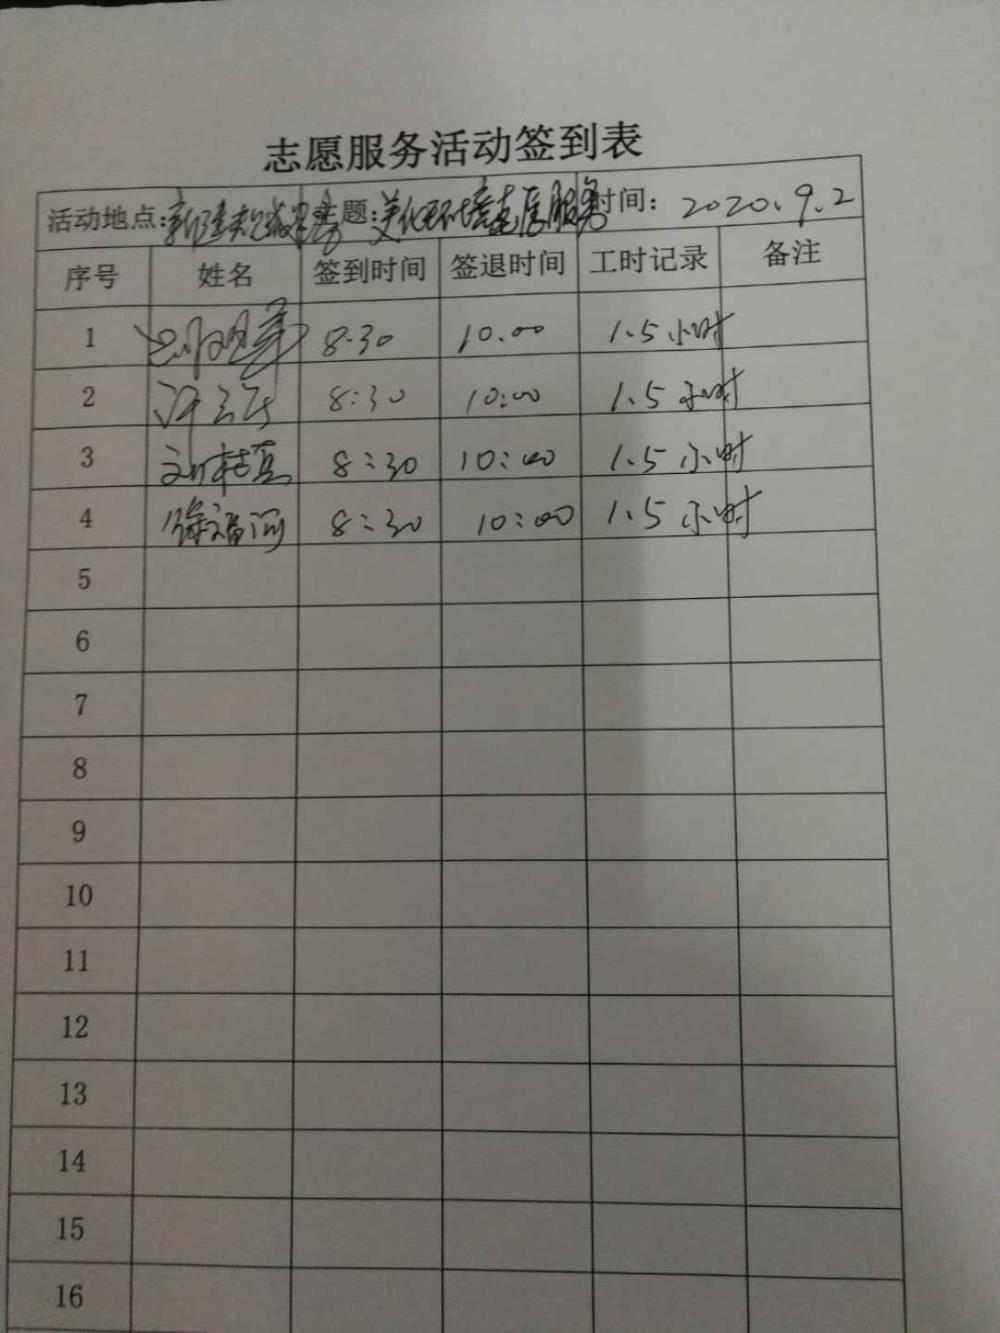 志愿服务活动签到表
活动地点: 主题: 美化环境志愿服务 时间: 2020.9.2
序号 姓名 签到时间 签退时间 工时记录 备注
1 8.30 10.00 1.5小时
2 8:30 10:00 1.5小时
3 刘桂真 8:30 10:00 1.5小时
4 徐福河 8:30 10:00 1.5小时
5
6
7
8
9
10
11
12
13
14
15
16